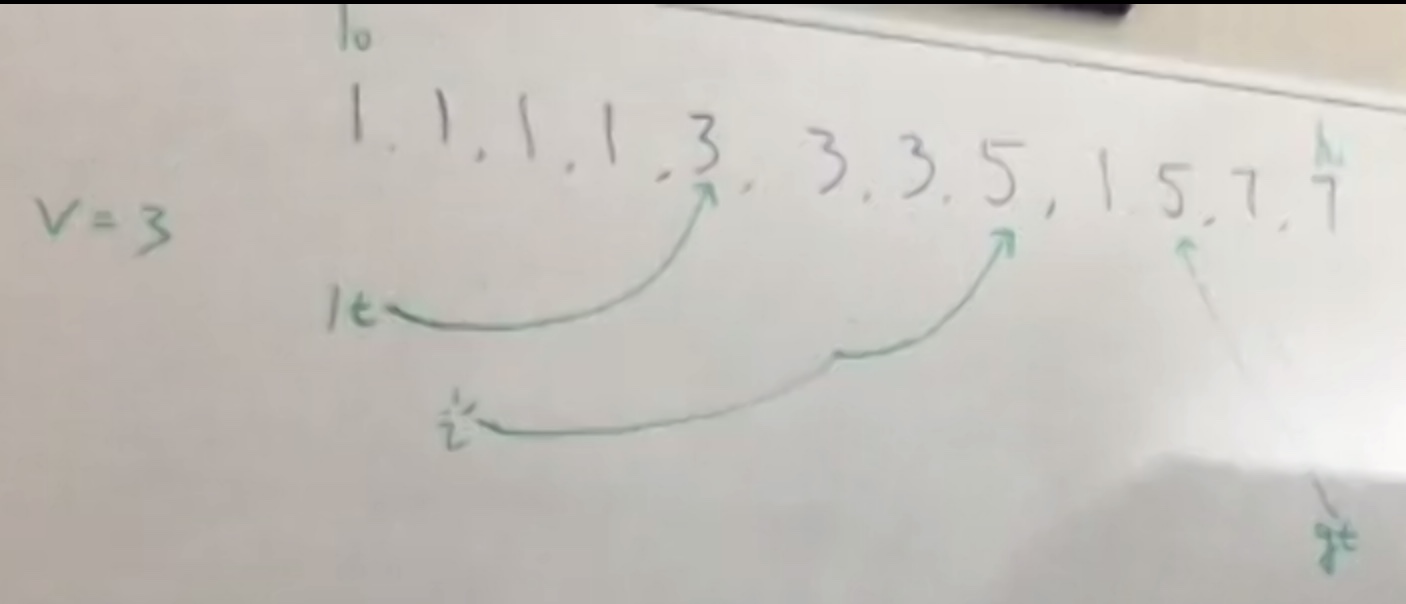 lo
hi
1, 1, 1, 1, 3, 3, 3, 5, 1 5, 7, 7
V = 3
lt
i
gt